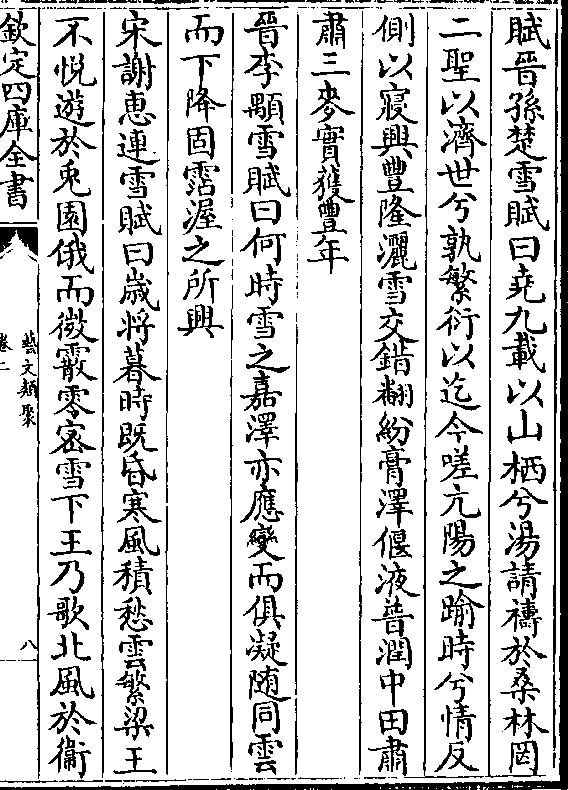 賦晉孫楚雪賦曰堯九載以山栖兮湯請禱於桑林罔
二聖以濟世兮孰繁衍以迄今嗟亢陽之踰時兮情反
側以寢興豐隆灑雪交錯翻紛膏澤偃液普潤中田肅
肅三麥實獲豐年
晉李顒雪賦曰何時雪之嘉澤亦應變而俱凝随同雲
而下降固霑渥之所興
宋謝惠連雪賦曰歳将暮時既昏寒風積愁雲繁梁王
不悅遊於兎園俄而微霰零密雪下王乃歌北風於衞
欽定四庫全書
藝文類聚
卷二
八